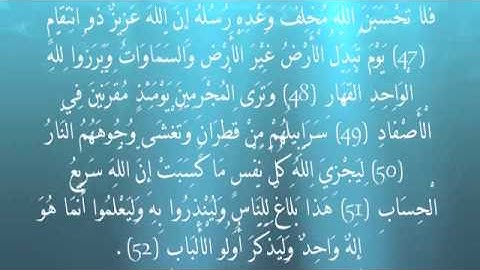 فَلَا تَحْسَبَنَّ اللَّهَ مُخْلِفَ وَعْدِهِ رُسُلَهُ إِنَّ اللَّهَ عَزِيزٌ ذُو انْتِقَامٍ
(47) يَوْمَ تُبَدَّلُ الْأَرْضُ غَيْرَ الْأَرْضِ وَالسَّمَاوَاتُ وَبَرَزُوا لِلَّهِ
الْوَاحِدِ الْقَهَّارِ (48) وَتَرَى الْمُجْرِمِينَ يَوْمَئِذٍ مُقَرَّنِينَ فِي
الْأَصْفَادِ (49) سَرَابِيلُهُمْ مِنْ قَطِرَانٍ وَتَغْشَى وُجُوهَهُمُ النَّارُ
(50) لِيَجْزِيَ اللَّهُ كُلَّ نَفْسٍ مَا كَسَبَتْ إِنَّ اللَّهَ سَرِيعُ
الْحِسَابِ (51) هَذَا بَلَاغٌ لِلنَّاسِ وَلِيُنْذَرُوا بِهِ وَلِيَعْلَمُوا أَنَّمَا هُوَ
إِلَهٌ وَاحِدٌ وَلِيَذَّكَّرَ أُولُو الْأَلْبَابِ (52) .